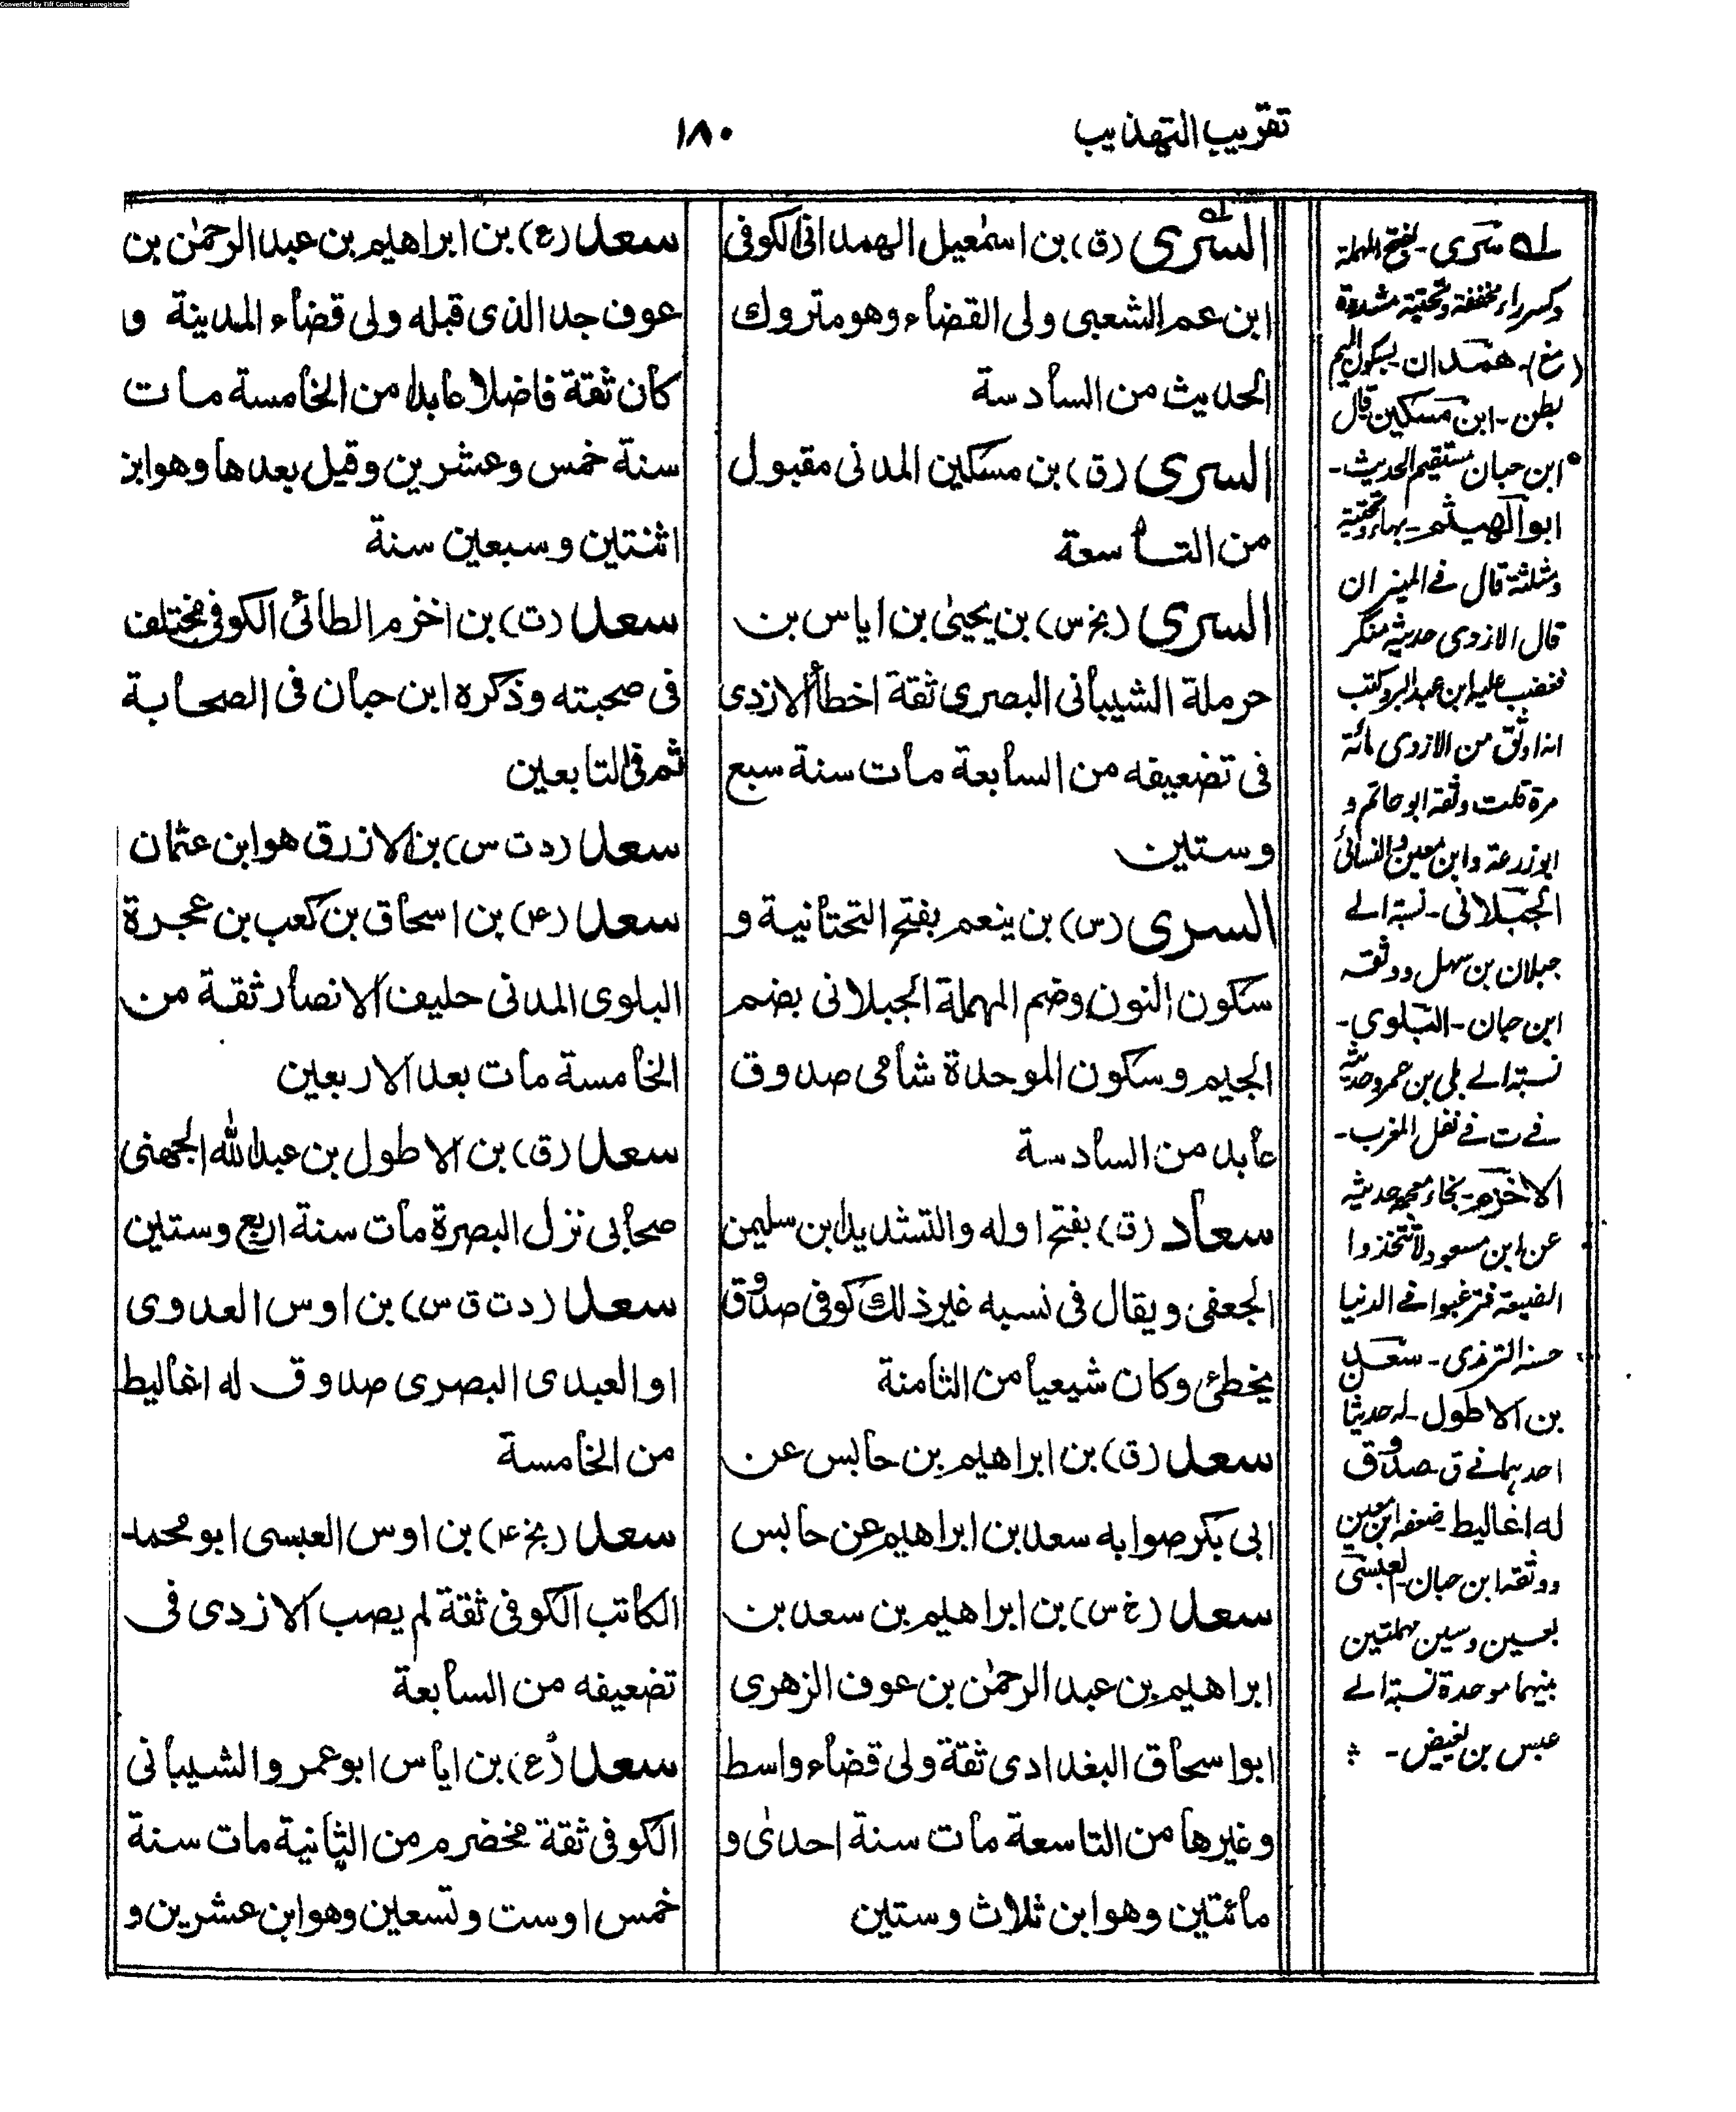 Converted by Tiff Combine - unregistered
تقريب التهذيب
١٨٠
السرى (ق) بن اسمعيل الهمدانى الكوفى
ابن عم الشعبى ولى القضاء وهو متروك
الحديث من السادسة
السرى (ق) بن مسكين المدنى مقبول
من التاسعة
السرى (بخ س) بن يحيى بن اياس بن
حرملة الشيبانى البصرى ثقة اخطأ الازدى
فى تضعيفه من السابعة مات سنة سبع
وستين
السرى (س) بن ينعم بفتح التحتانية و
سكون النون وضم المهملة الجبلانى بضم
الجيم وسكون الموحدة شامى صدوق
عابد من السادسة
سعاد (ق) بفتح اوله والتشديد ابن سليمن
الجعفى ويقال فى نسبه غير ذلك كوفى صدوق
يخطئ وكان شيعيا من الثامنة
سعد (ق) بن ابراهيم بن حابس عن
ابى بكر صوابه سعد بن ابراهيم عن حابس
سعد (خ س) بن ابراهيم بن سعد بن
ابراهيم بن عبد الرحمن بن عوف الزهرى
ابو اسحاق البغدادى ثقة ولى قضاء واسط
وغيرها من التاسعة مات سنة احدى و
مائتين وهو ابن ثلاث وستين
سعد (ع) بن ابراهيم بن عبد الرحمن بن
عوف جد الذى قبله ولى قضاء المدينة و
كان ثقة فاضلا عابدا من الخامسة مات
سنة خمس وعشرين وقيل بعدها وهو ابن
اثنتين وسبعين سنة
سعد (ت) بن اخرم الطائى الكوفى مختلف
فى صحبته وذكره ابن حبان فى الصحابة
ثم فى التابعين
سعد (د ت س) بن الازرق هو ابن عثمان
سعد (٤) بن اسحاق بن كعب بن عجرة
البلوى المدنى حليف الانصار ثقة من
الخامسة مات بعد الاربعين
سعد (ق) بن الاطول بن عبد الله الجهنى
صحابى نزل البصرة مات سنة اربع وستين
سعد (د ت ق س) بن اوس العدوى
او العبدى البصرى صدوق له اغاليط
من الخامسة
سعد (بخ ٤) بن اوس العبسى ابو محمد
الكاتب الكوفى ثقة لم يصب الازدى فى
تضعيفه من السابعة
سعد (ع) بن اياس ابو عمرو الشيبانى
الكوفى ثقة مخضرم من الثانية مات سنة
خمس او ست وتسعين وهو ابن عشرين و
له سرى - بفتح المهملة
وكسر راء مخففة وتحتية مشددة
(غ) - همدان - بسكون الميم
بطن - ابن مسكين قال
ابن حبان مستقيم الحديث -
ابو الهيثم - بهاء وتحتية
ومثلثة قال فى الميزان
قال الازدى حديثه منكر
فغضب عليه ابن عبد البر وكتب
انه اوثق من الازدى مائة
مرة قلت وثقه ابو حاتم و
ابو زرعة وابن معين والنسائى
الجبلانى - نسبة الى
جبلان بن سهل ووثقه
ابن حبان - البلوى -
نسبة الى بلى بن عمرو حديثه
فى ت فى نفل المغرب -
الاخرم - بخاء معجمة حديثه
عن ابن مسعود لا تتخذوا
الضيعة فترغبوا فى الدنيا
حسنه الترمذى - سعد
بن الاطول - له حديثا
احدهما فى ق - صدوق
له اغاليط - ضعفه ابن معين
ووثقه ابن حبان - العبسى
بعسين وسين مهملتين
بينهما موحدة نسبة الى
عبس بن بغيض -